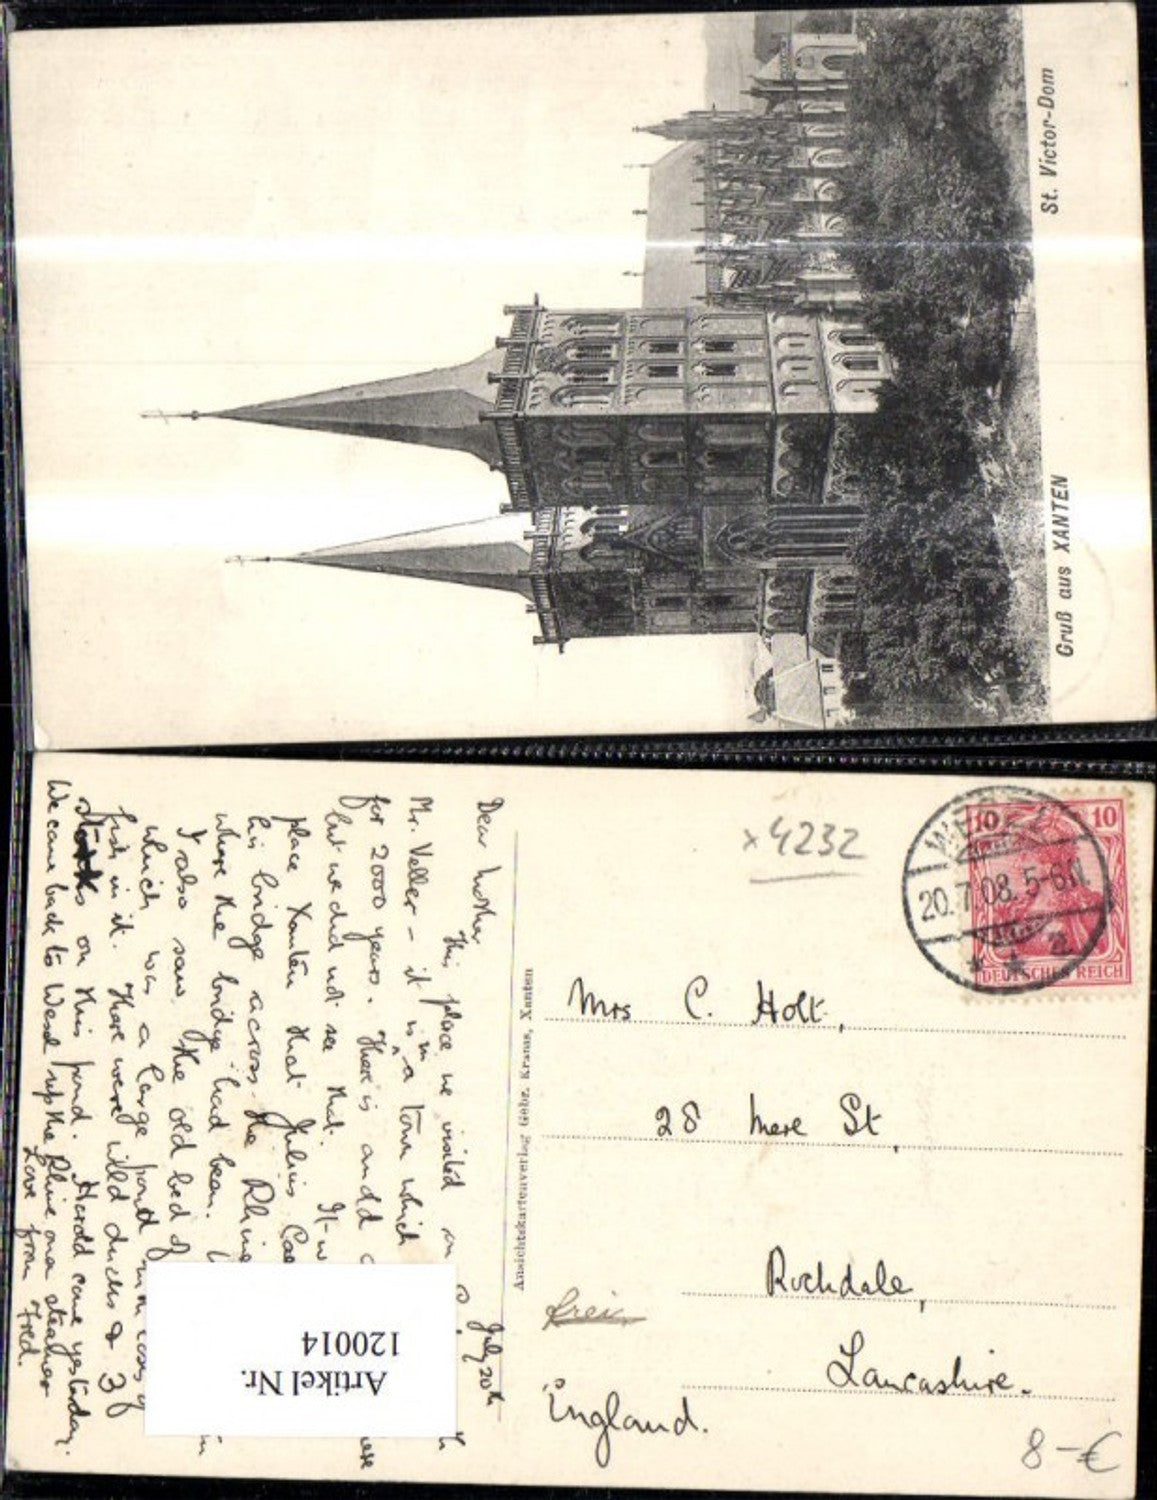 St. Victor-Dom
Gruß aus XANTEN
Dear Mother July 20th
This place we visited on
Mr. Veller - it is in a town which
for 2000 years. There is and
but we did not see that. It
place Xanten that Julius Cae
his bridge across the Rhine
where the bridge had been.
I also saw the old bed of
which was a large pond
fish in it. There were wild ducks & 3
storks on this pond. Harold came yesterday.
We came back to Wesel up the Rhine on a steamer
Love from Fred.
Ansichtskartenverlag Gebr. Kraus, Xanten
x 4232
WESEL
20.7.08. 5-6N.
* 1 a
10 10
DEUTSCHES REICH
Mrs C. Holt,
28 Mere St,
Rochdale,
Lancashire.
England.
frei
8-€
Artikel Nr.
120014